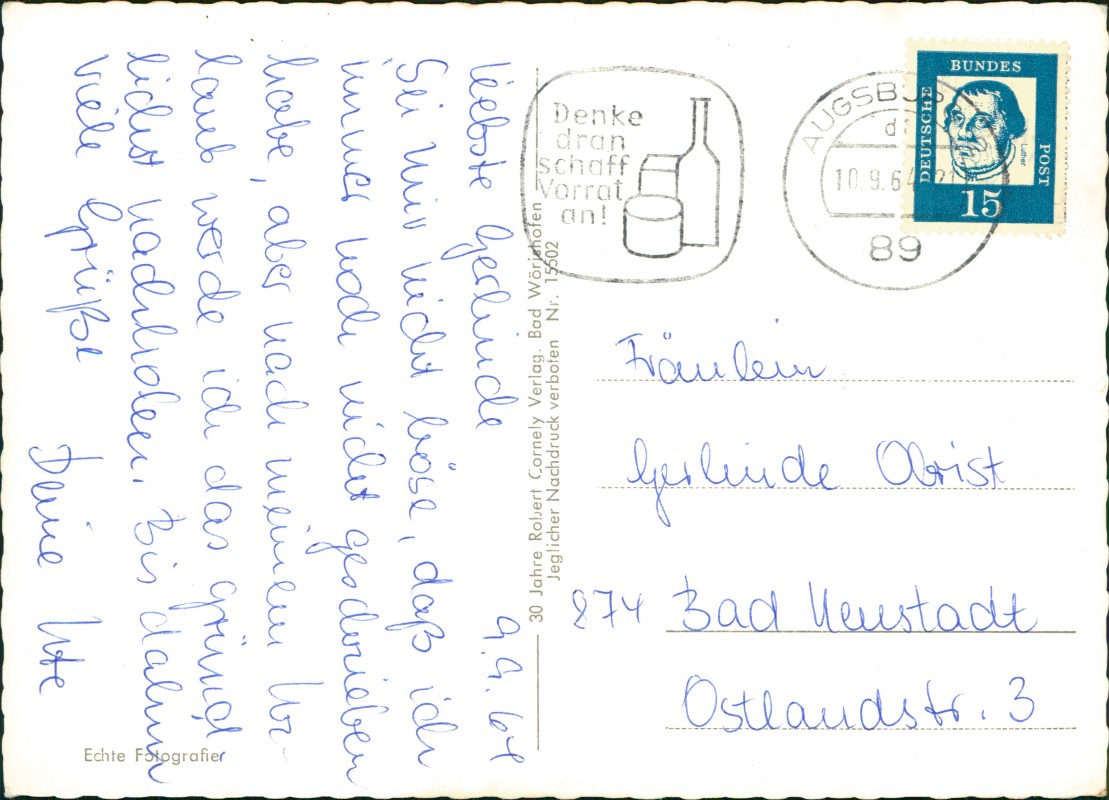 9.9.64
Liebste Gerlinde
Sei mir nicht böse, daß ich
immer noch nicht geschrieben
habe, aber nach meinem Ur-
laub werde ich das gründ
lichst nachholen. Bis dahin
viele Grüße
Deine Ute
Echte Fotografie
30 Jahre Robert Cornely Verlag. Bad Wörishofen
Jeglicher Nachdruck verboten Nr. 15502
Denke
dran
schaff
Vorrat
an!
AUGSBURG
d
10.9.64
21
89
DEUTSCHE
BUNDES
POST
Luther
15
Fräulein
Gerlinde Obrist
874 Bad Neustadt
Ostlandstr. 3